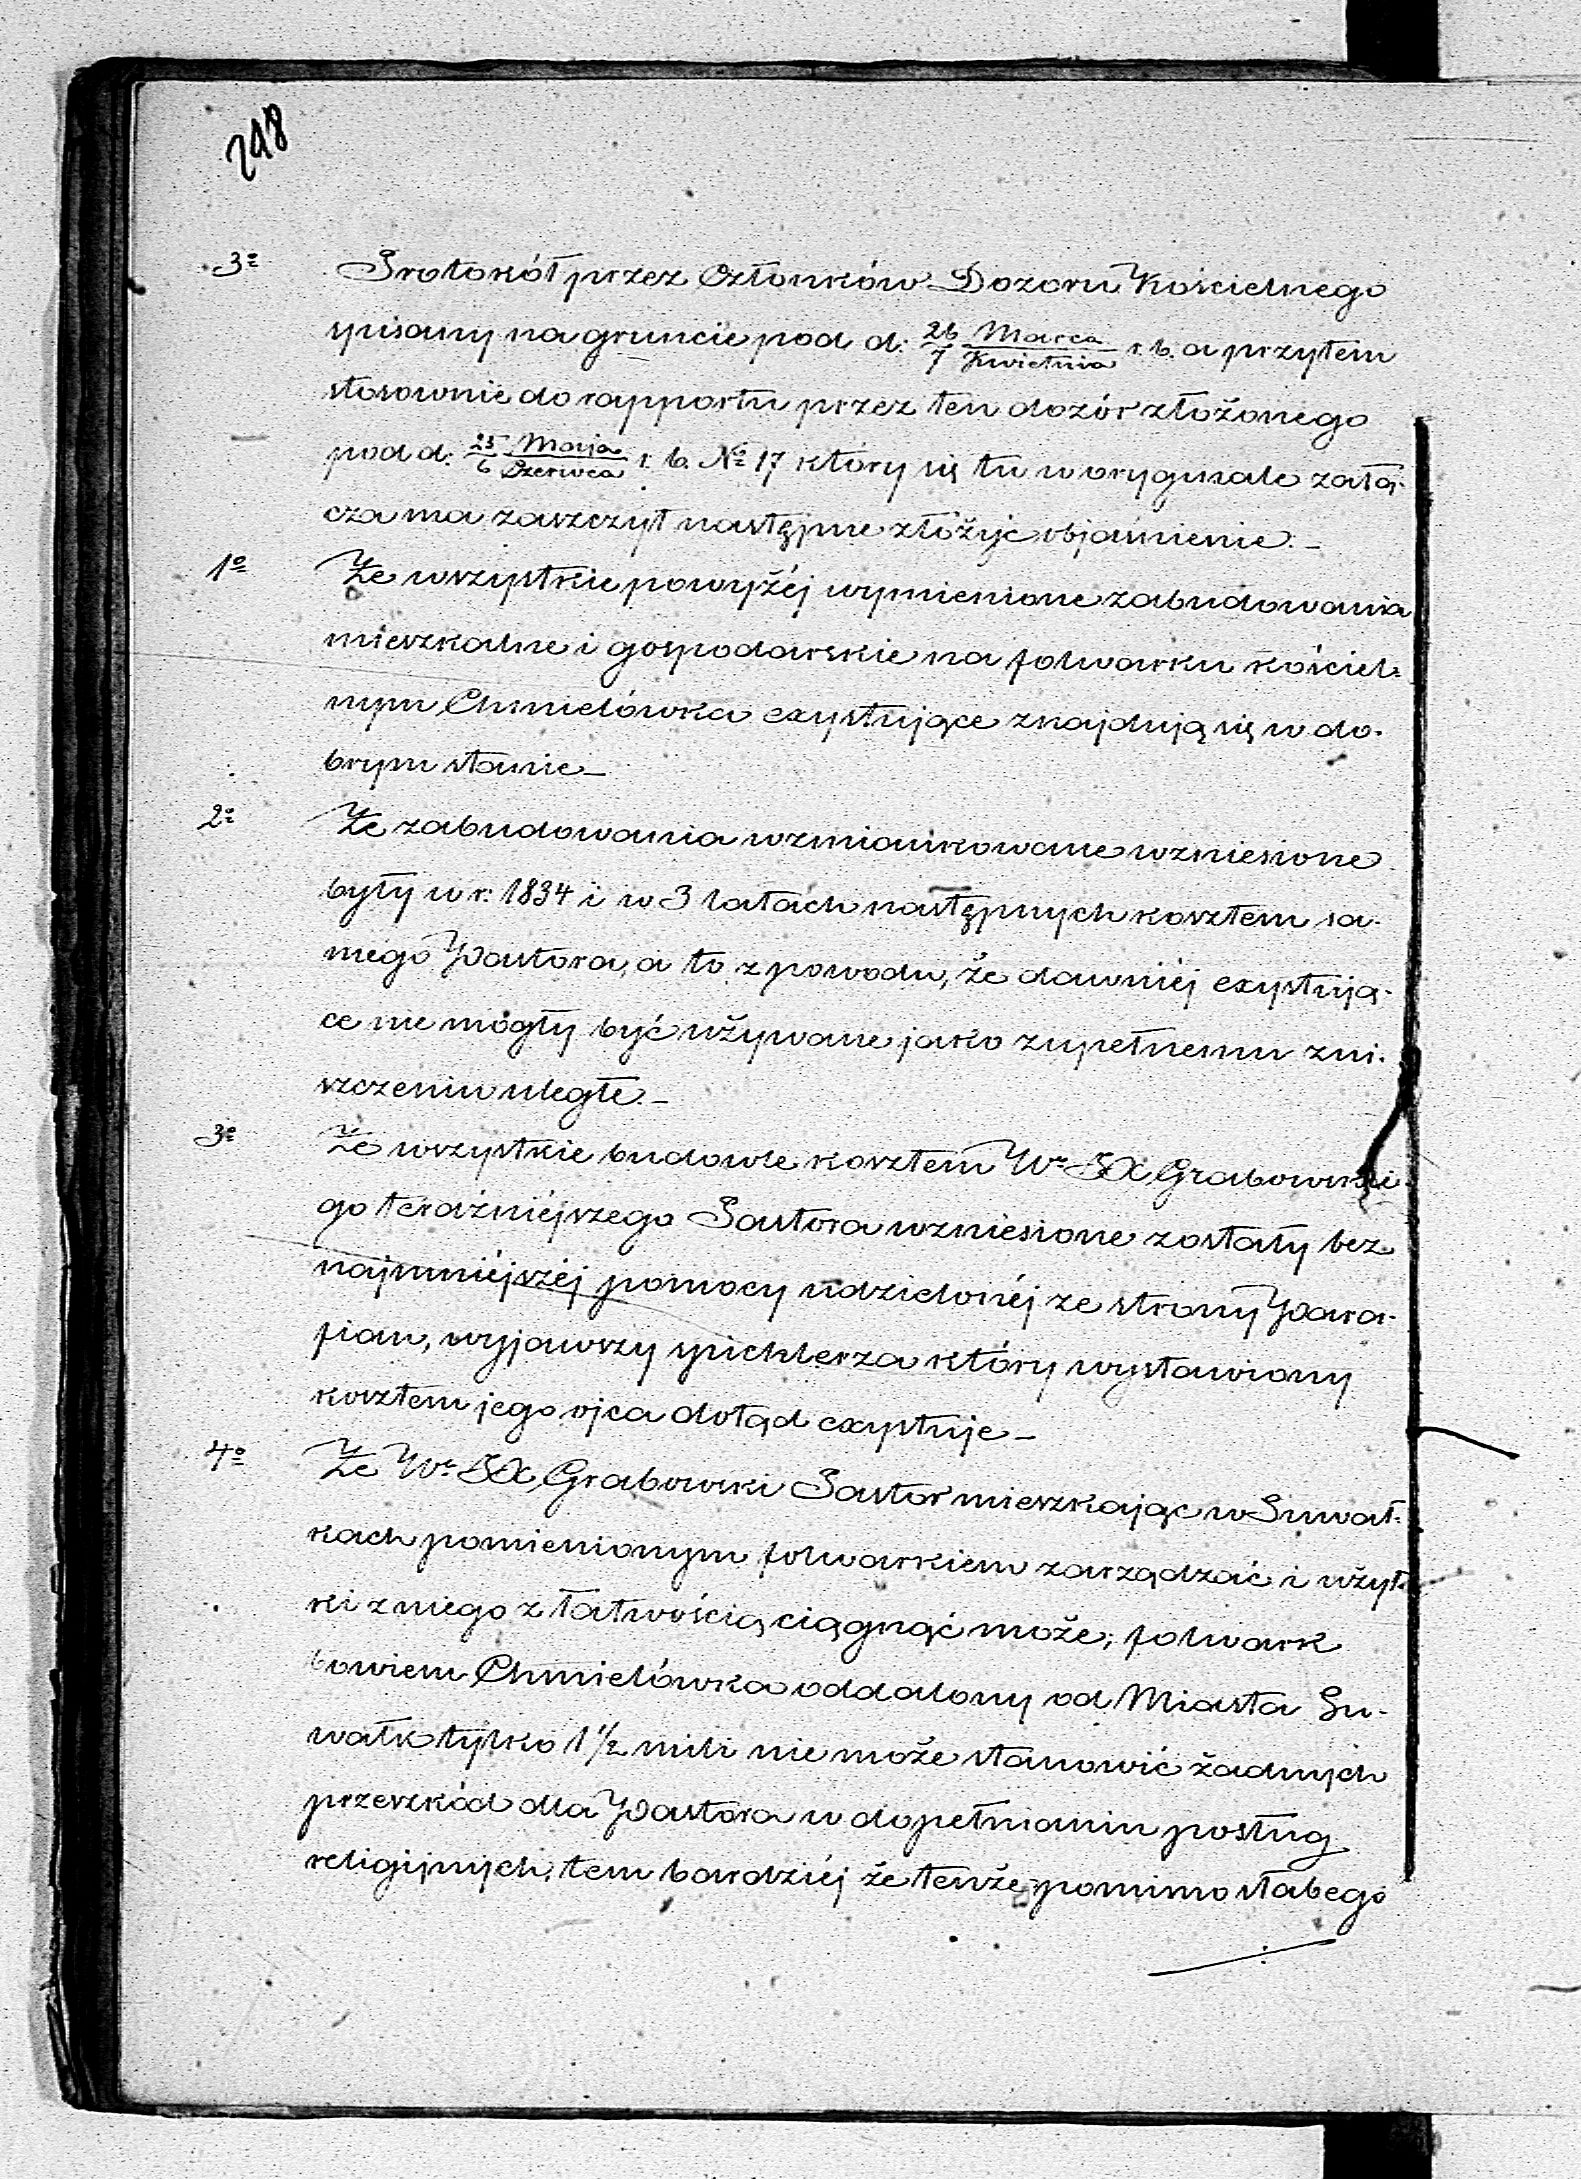 248
3o Protokół przez Członków Dozoru Kościelnego
spisany na gruncie pod d: 26/7 Marca/Kwietnia r. b. a przytem
stosownie do rapportu przez ten dozór złożonego
pod d: 25/6 Maja/Czerwca r. b. No 17 który się tu w oryginale załą-
cza ma zaszczyt następne złożyć objaśnienie. –
1o Że wszystkie powyżéj wymienione zabudowania
mieszkalne i gospodarskie na folwarku kościel-
nym Chmielówka exystujące znajdują się w do-
brym stanie –
2o Że zabudowania wzmiankowane wzniesione
były w r: 1834 i w 3 latach następnych kosztem sa-
mego Pastora, a to z powodu, że dawniéj exystują-
ce nie mogły być używane jako zupełnemu zni-
szczeniu uległe. –
3o Że wszystkie budowle kosztem Wo JX Grabowski-
go teraźniéjszego Pastora wzniesione zostały bez
najmniéjszéj pomocy udzielonéj ze strony Para-
fian, wyjąwszy spichlerza który wystawiony
kosztem jego ojca dotąd exystuje –
4o Że Wo JX Grabowski Pastor mieszkając w Suwał-
kach pomienionym folwarkiem zarządzać i użyt-
ki z niego z łatwością ciągnąć może; folwark
bowiem Chmielówka oddalony od Miasta Su-
wałk tylko 1 1/2 mili nie może stanowić żadnych
przeszkód dla Pastora w dopełnianiu posług
religijnych, tem bardziéj że tenże pomimo słabego